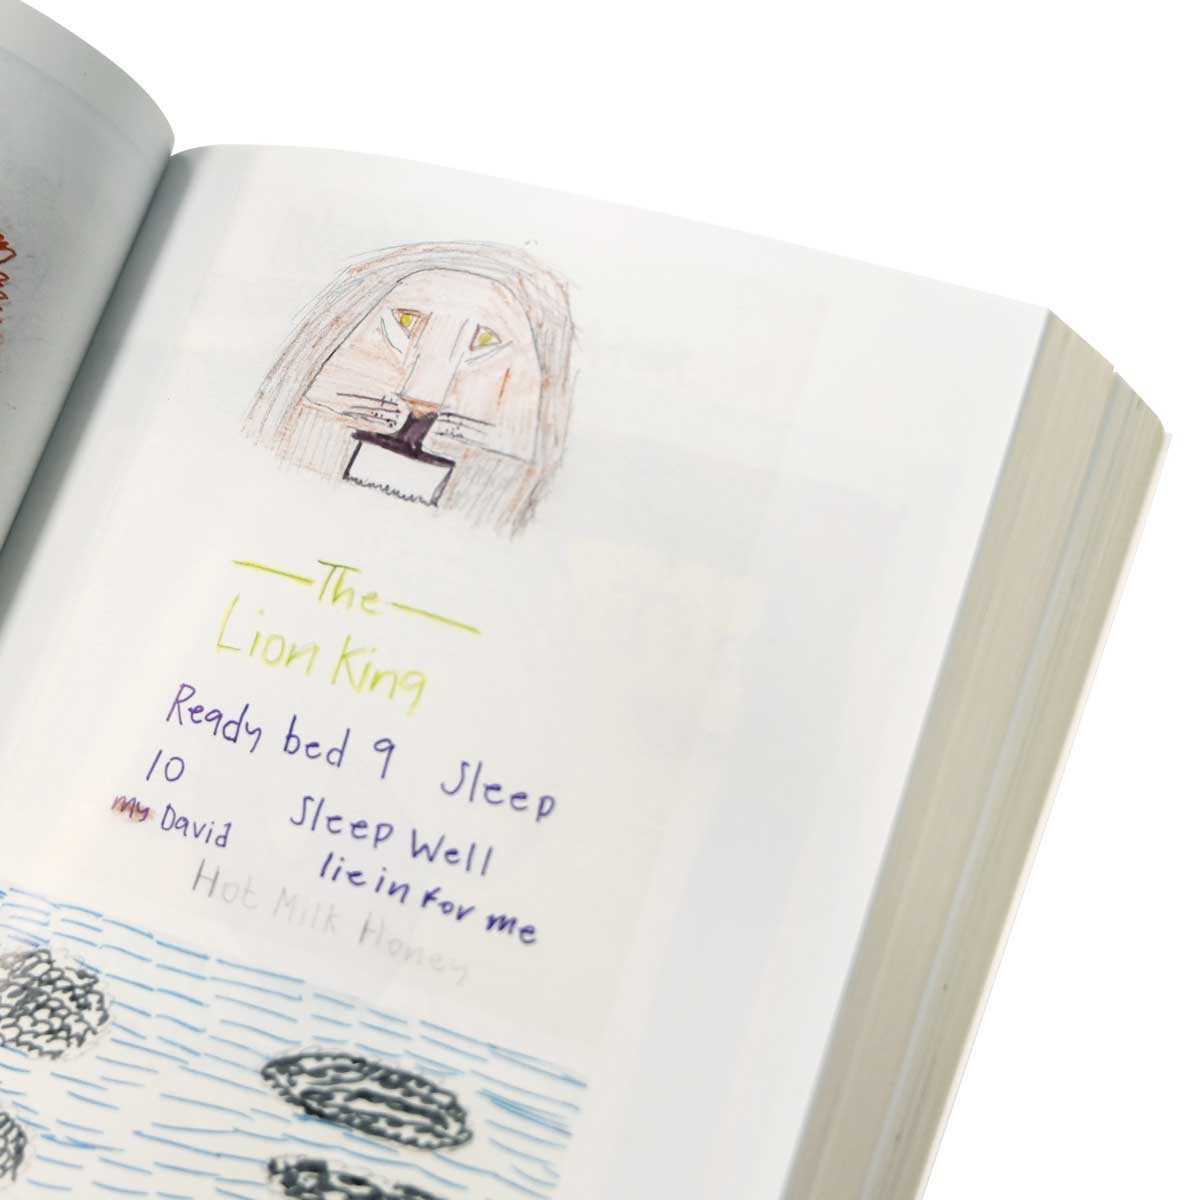 The
Lion King
Ready bed 9 Sleep
10 Sleep Well
my David lie in For me
Hot Milk Honey